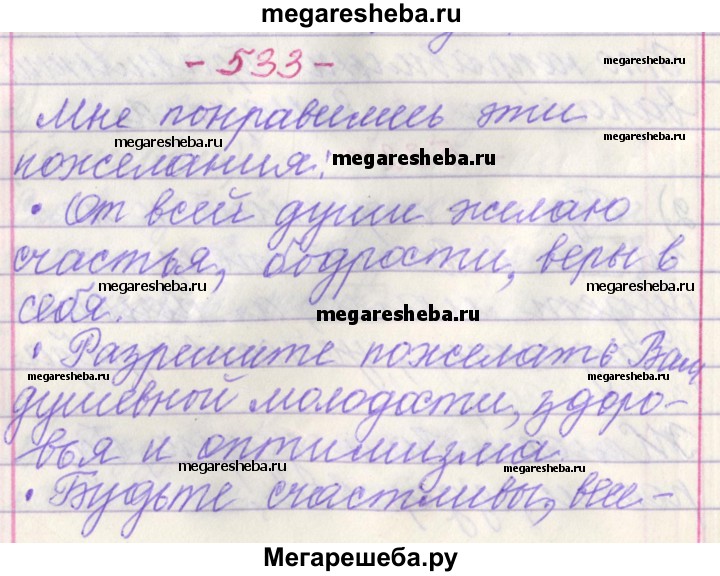 megaresheba.ru
- 533 -
megaresheba.ru
Мне понравились эти
megaresheba.ru
megaresheba.ru
пожелания:
megaresheba.ru
• От всей души желаю
счастья, бодрости, веры в
megaresheba.ru
megaresheba.ru
себя.
megaresheba.ru
• Разрешите пожелать Вам
megaresheba.ru
megaresheba.ru
душевной молодости, здоро-
вья и оптимизма
megaresheba.ru
megaresheba.ru
• Будьте счастливы, все-
Мегарешеба.ру